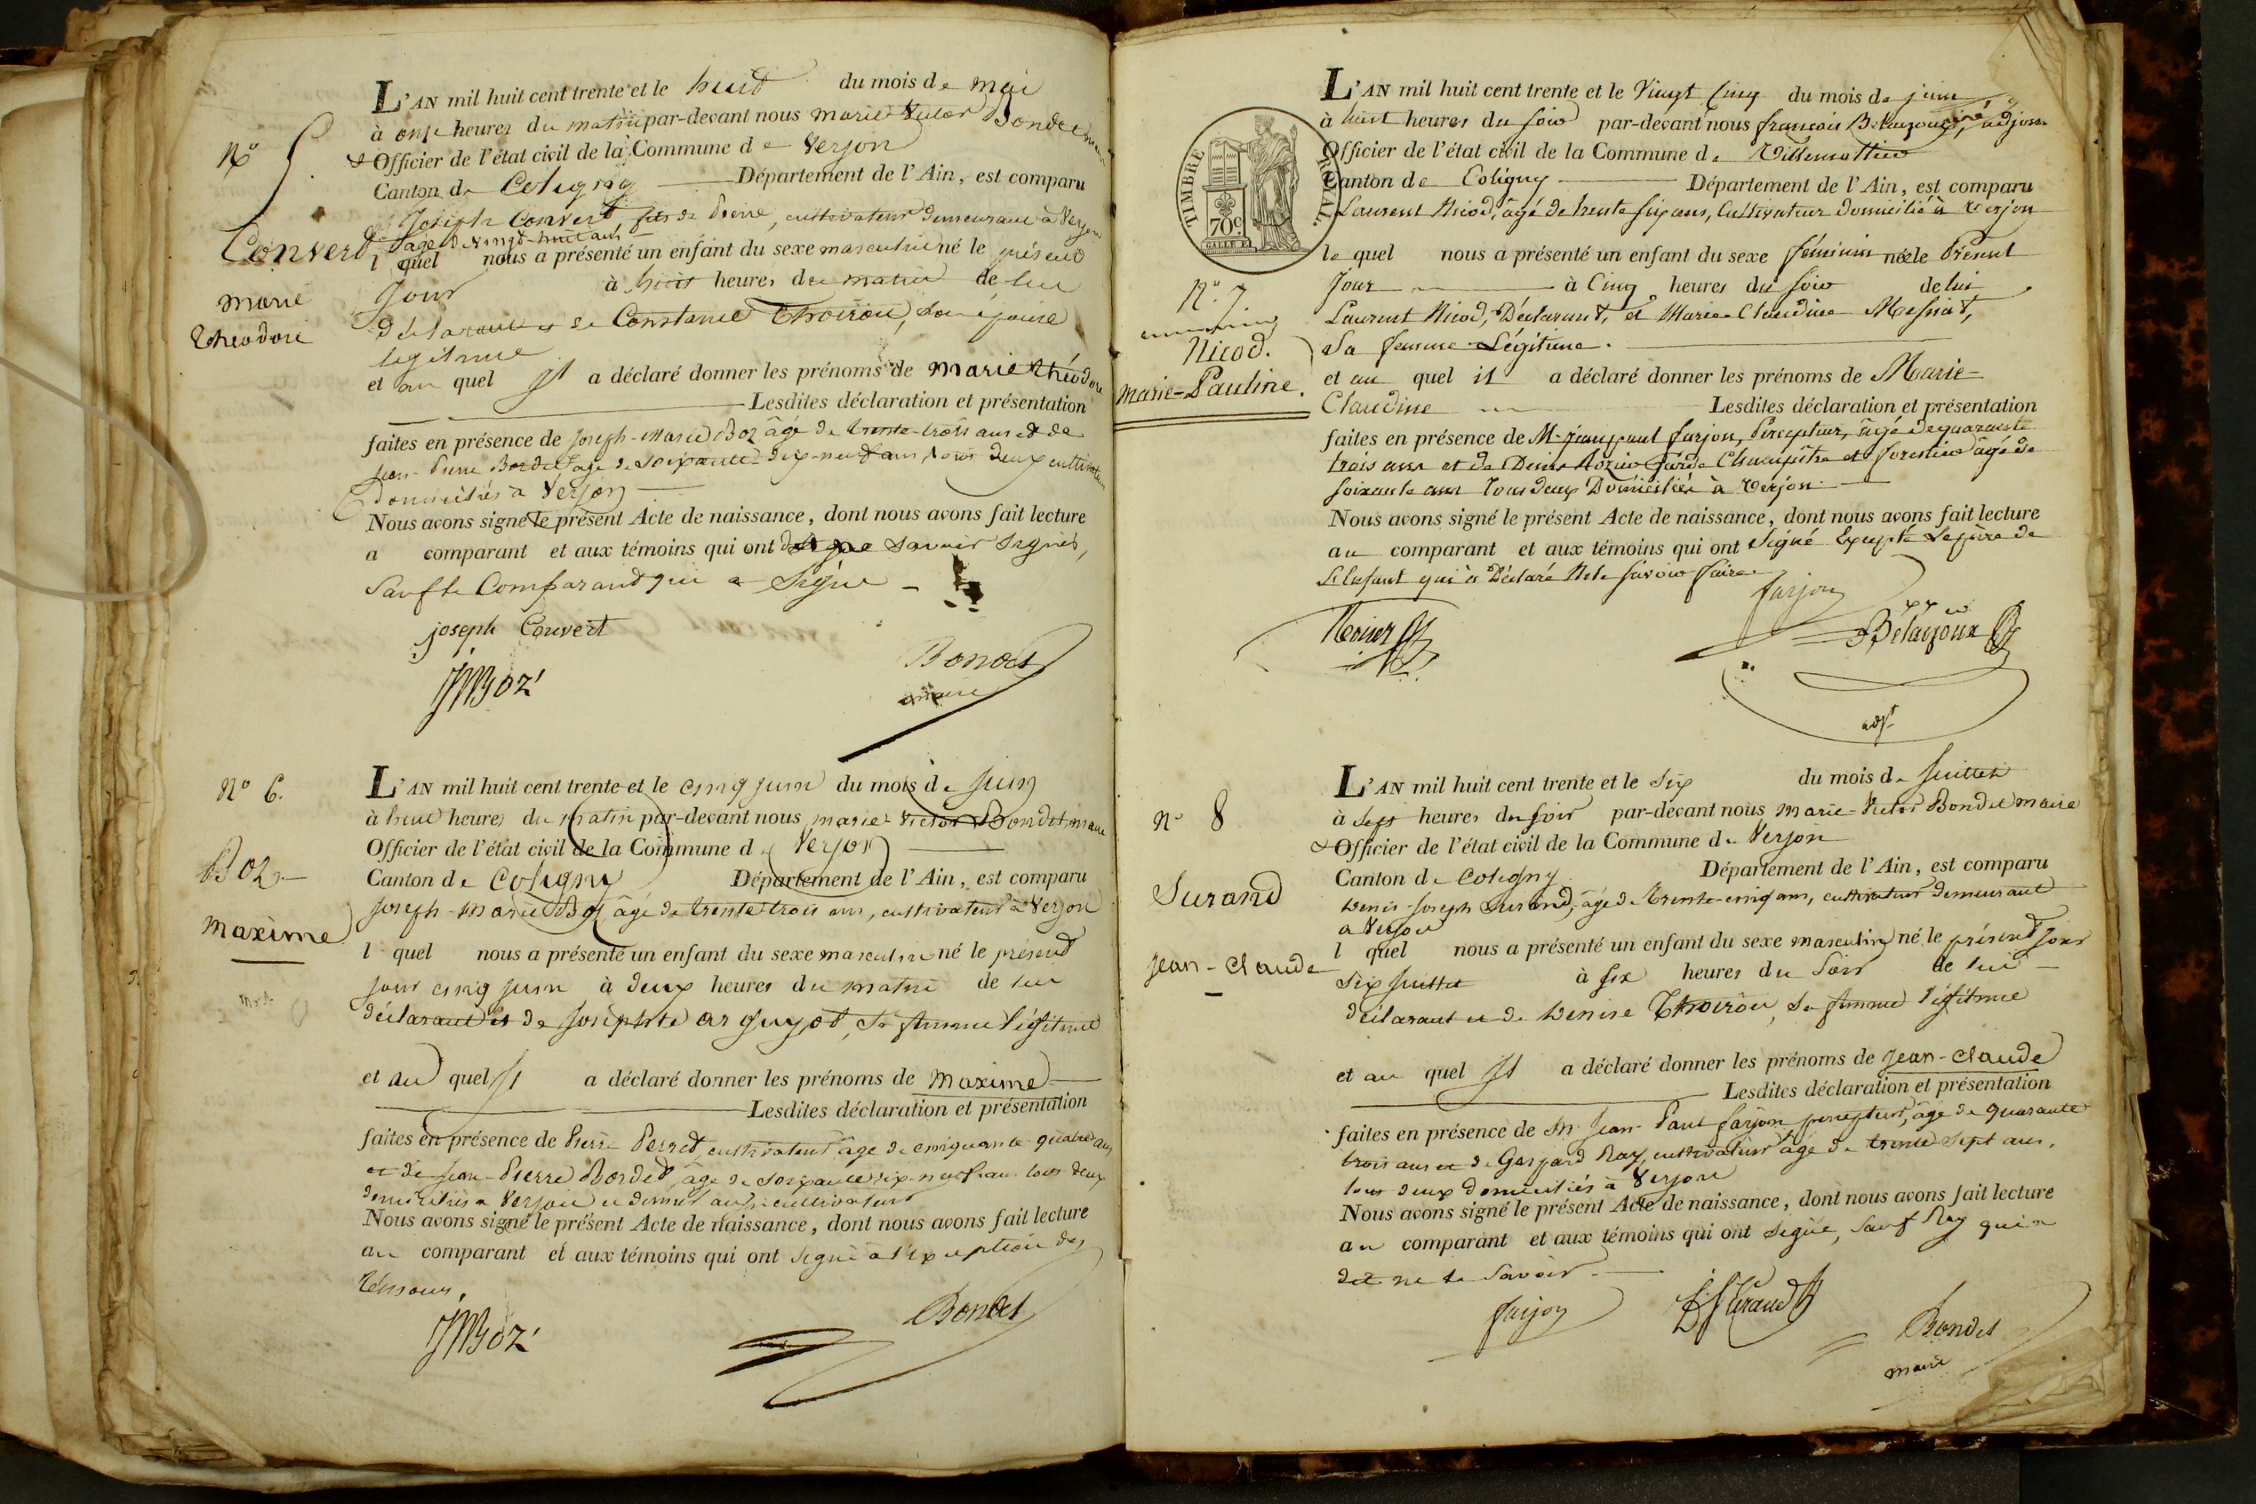 L'AN mil huit cent trente et le huit du mois de mai
à onze heures du matin par-devant nous marie Victor Bondet maire
& Officier de l'état civil de la Commune de Verjon
Canton de Coligny Département de l'Ain, est comparu
Joseph Convert, fils de Pierre, cultivateur demeurant à Verjon
âgé de vingt-huit ans
l quel nous a présenté un enfant du sexe masculin né le présent
Jour à huit heures du matin de lui
déclarant et de Constance Thoirou, son épouse
légitime
et au quel Il a déclaré donner les prénoms de Marie théodore
Lesdites déclaration et présentation
faites en présence de Joseph-Marie Boz âgé de trente-trois ans et de
Jean-Pierre Bordet âgé de soixante-dix-neuf ans, tous deux cultivateurs
domiciliés à Verjon
Nous avons signé le présent Acte de naissance, dont nous avons fait lecture
a comparant et aux témoins qui ont savoir signer,
Sauf le Comparant qui a Signé
joseph Convert
JMBoz
Bondet
maire
N° 5.
Convert
marie
théodore
L'AN mil huit cent trente et le cinq juin du mois de Juin
à heures du matin par-devant nous marie-Victor Bondet, maire
Officier de l'état civil de la Commune d Verjon
Canton de Coligny Département de l'Ain, est comparu
Joseph-Marie Boz âgé de trente trois ans, cultivateur à Verjon
l quel nous a présenté un enfant du sexe masculin né le présent
jour cinq juin à deux heures du matin de lui
déclarant et de Josephte arguyot, Sa femme légitime
et au quel Il a déclaré donner les prénoms de Maxime
Lesdites déclaration et présentation
faites en présence de Pierre Perret, cultivateur âgé de cinquante-quatre ans
et de Jean-Pierre Bordet, âgé de soixante dix-neuf ans tous deux
domiciliés à Verjon et dernier aussi cultivateur
Nous avons signé le présent Acte de naissance, dont nous avons fait lecture
au comparant et aux témoins qui ont signé à l'exception des
témoins.
JMBoz
Bondet
N° 6.
Boz
Maxime
TIMBRE ROYAL
70c
L'AN mil huit cent trente et le Vingt Cinq du mois de juin
à huit heures du soir par-devant nous françois Belaysoux, adjoint
Officier de l'état civil de la Commune de Villemottier
Canton de Coligny Département de l'Ain, est comparu
Laurent Nicod, âgé de trente six ans, Cultivateur Domicilié à Verjon
le quel nous a présenté un enfant du sexe féminin née le Présent
Jour à Cinq heures du soir de lui
Laurent Nicod, Déclarant, et Marie-Claudine Messiat,
Sa femme Légitime.
et au quel il a déclaré donner les prénoms de Marie-
Claudine Lesdites déclaration et présentation
faites en présence de M. Jean paul farjon, Percepteur, âgé de quarante
trois ans et de Denis garde Champêtre et forestier âgé de
soixante ans Tous deux Domiciliés à Verjon
Nous avons signé le présent Acte de naissance, dont nous avons fait lecture
au comparant et aux témoins qui ont signé Excepté Le père de
L'Enfant qui a Déclaré Ne le savoir faire.
farjon
adjt
N° 7.
Nicod.
Marie-Pauline.
L'AN mil huit cent trente et le six du mois de Juillet
à sept heures du soir par-devant nous Marie-Victor Bondet maire
& Officier de l'état civil de la Commune de Verjon
Canton de Coligny Département de l'Ain, est comparu
Denis-Joseph Surand, âgé de trente-cinq ans, cultivateur demeurant
à Verjon
l quel nous a présenté un enfant du sexe masculin né le présent jour
six Juillet à six heures du Soir de lui
déclarant et de Denise Thoirou, Sa femme légitime
et au quel Il a déclaré donner les prénoms de Jean-Claude
Lesdites déclaration et présentation
faites en présence de Mr Jean-Paul farjon percepteur, âgé de quarante
trois ans et de Gaspard Ray, cultivateur âgé de trente sept ans,
tous deux domiciliés à Verjon
Nous avons signé le présent Acte de naissance, dont nous avons fait lecture
au comparant et aux témoins qui ont signé, sauf Ray qui a
dit ne le Savoir.
farjon
Bondet
maire
N° 8
Surand
Jean-Claude